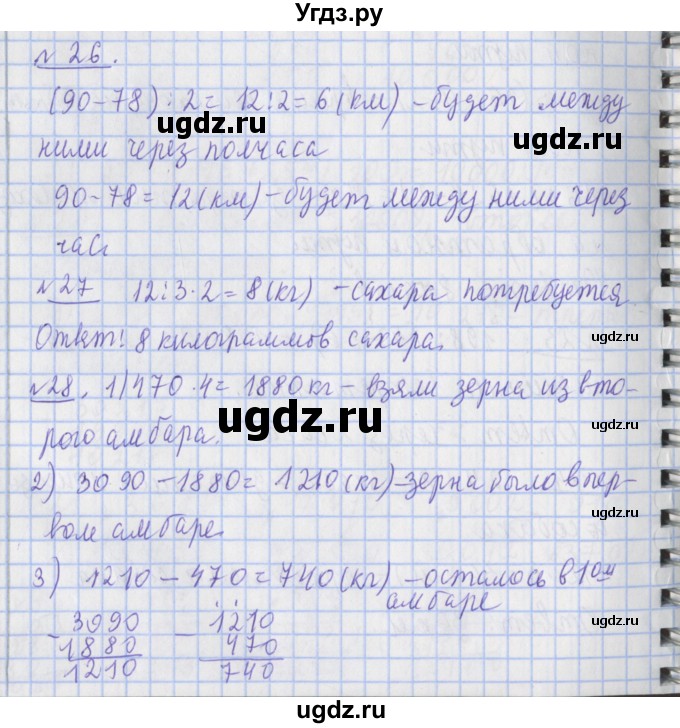 Угдз.ру
№ 26.
(90-78):2= 12:2=6(км) -будет между
ugdz.ru
ними через полчаса
ugdz.ru
90-78= 12(км)-будет между ними через
час
№27 12:3·2=8(кг) -сахара потребуется
Ответ: 8 килограммов сахара.
ugdz.ru
№28. 1)470·4=1880кг- взяли зерна из вто-
ugdz.ru
рого амбара.
2) 3090-1880=1210(кг)-зерна было в пер-
ugdz.ru
вом амбаре.
3) 1210-470=740(кг) -осталось в 1ом
амбаре
-3090 -1210
1880 470
ugdz.ru
1210 740
ugdz.ru
ugdz.ru